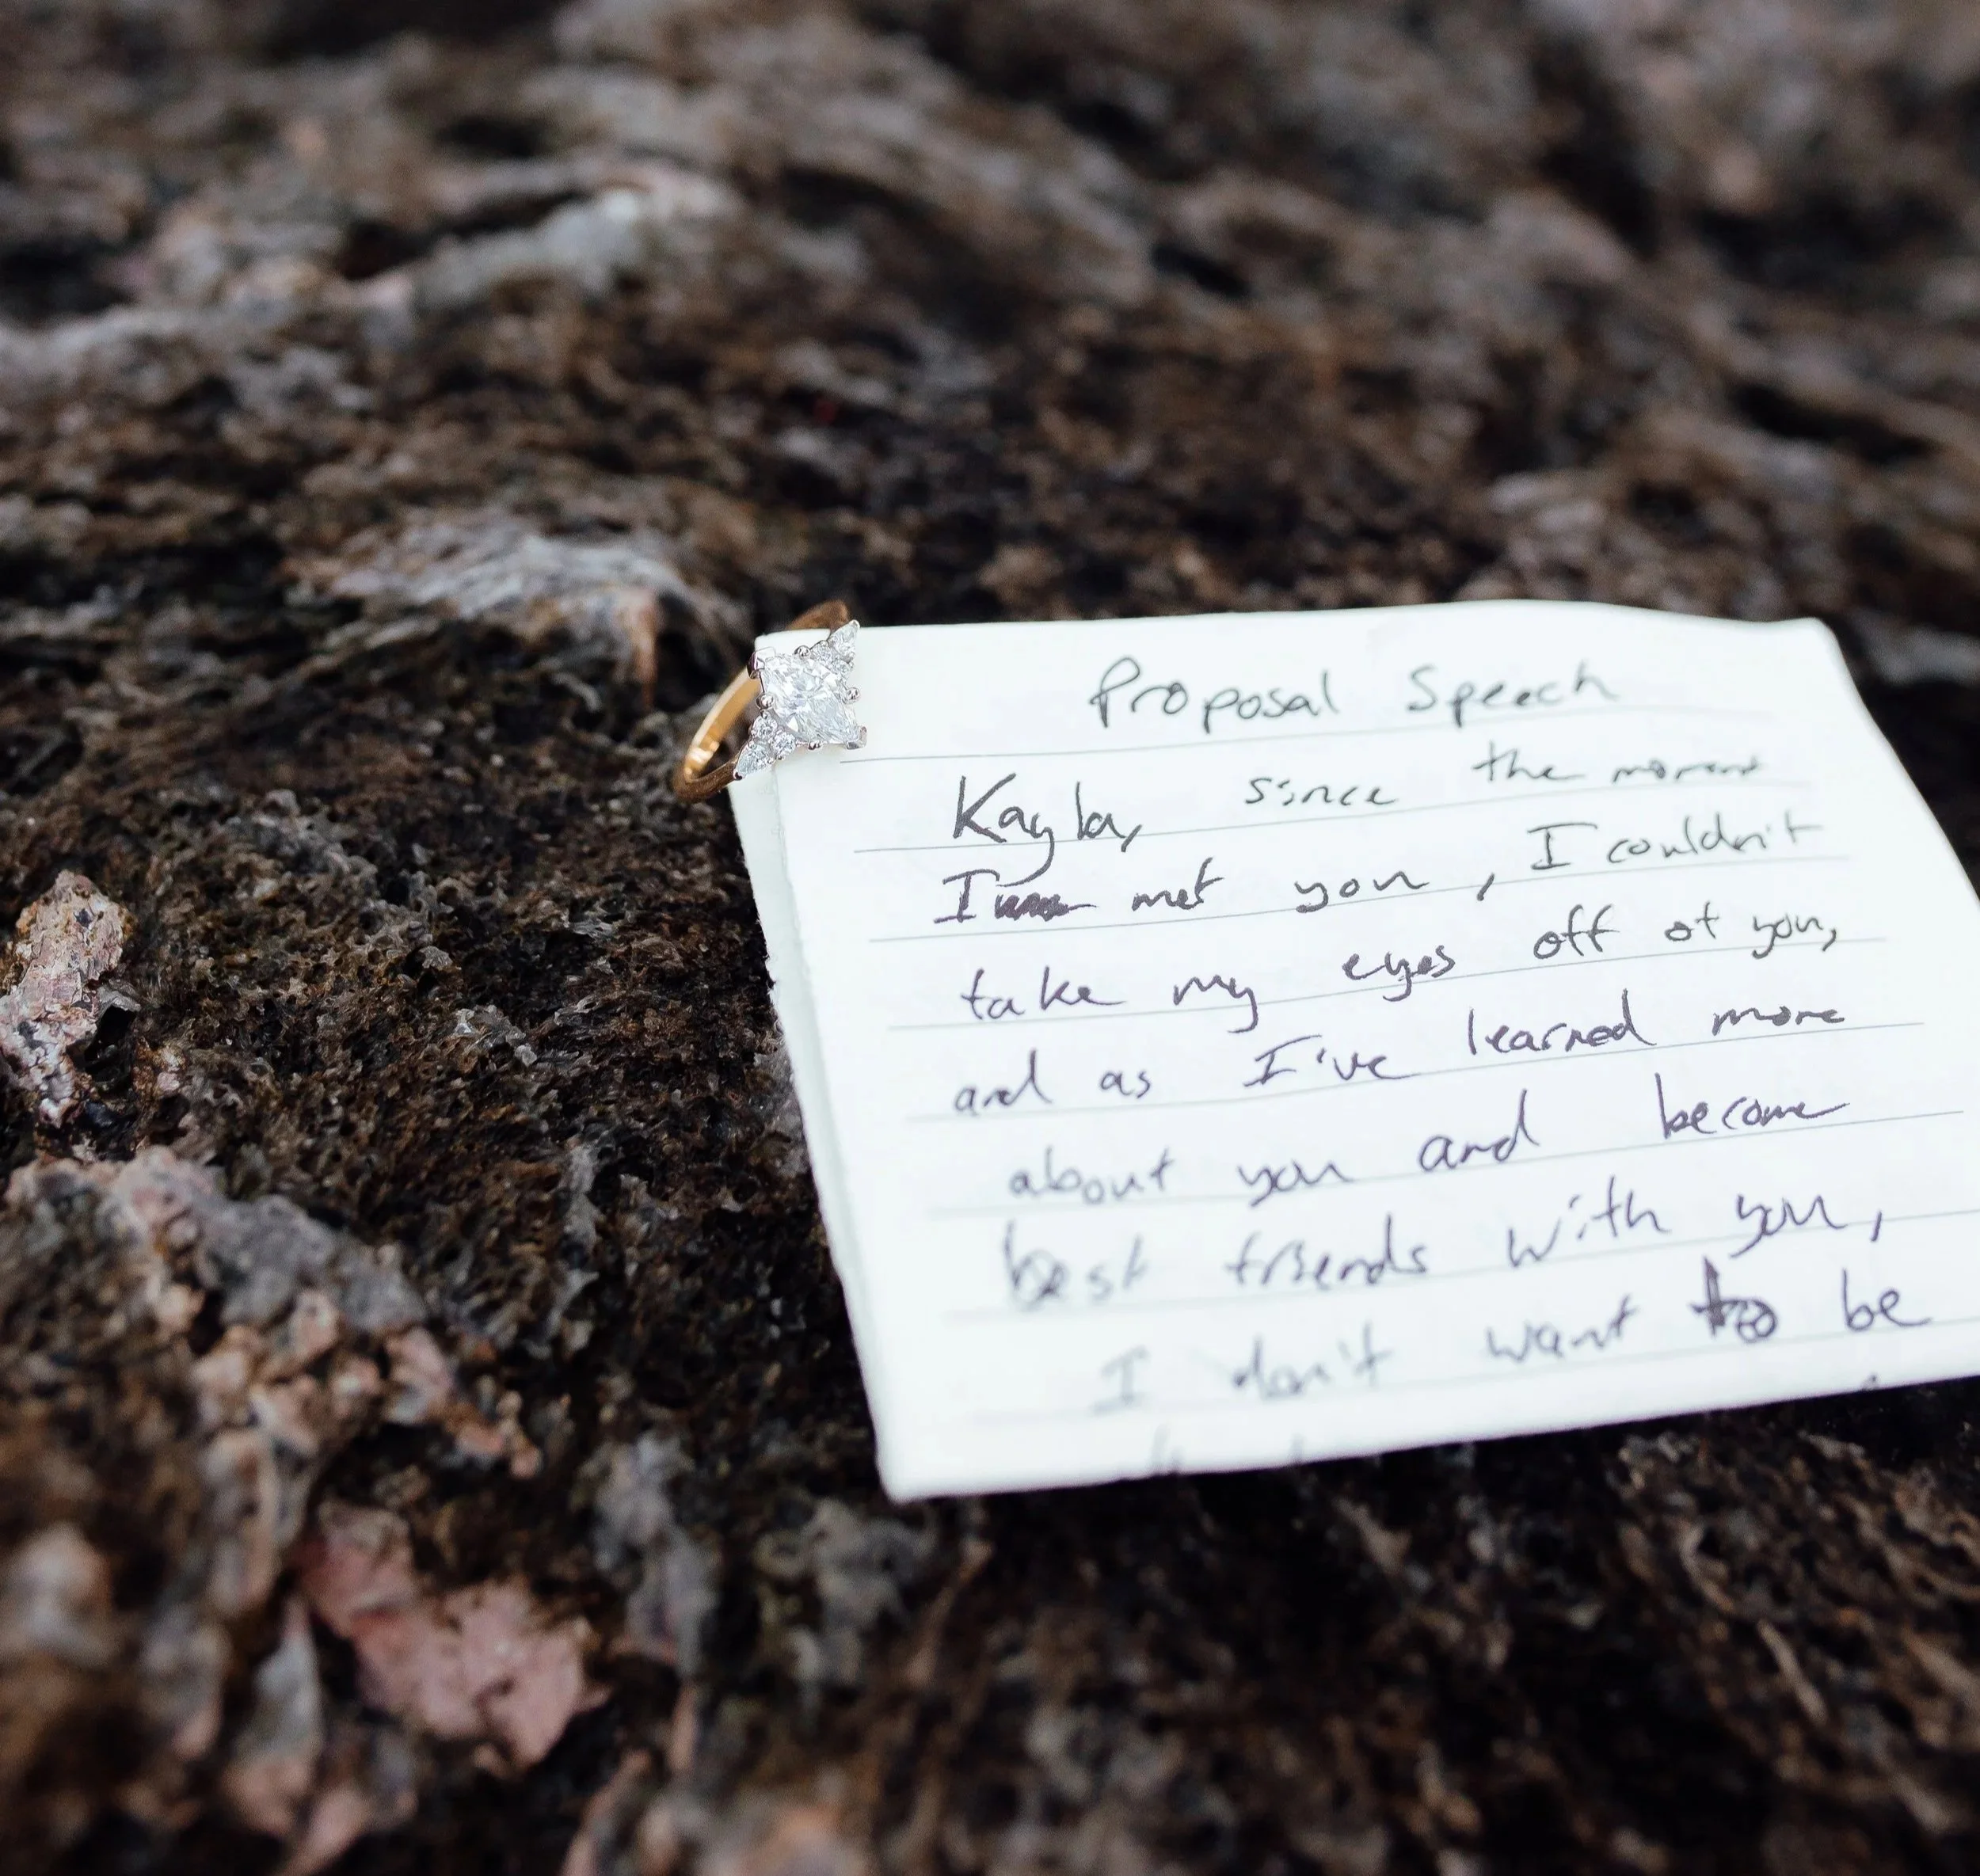 Proposal Speech
Kayla, since the moment
I met you, I couldn't
take my eyes off of you,
and as I've learned more
about you and become
best friends with you,
I don't want to be